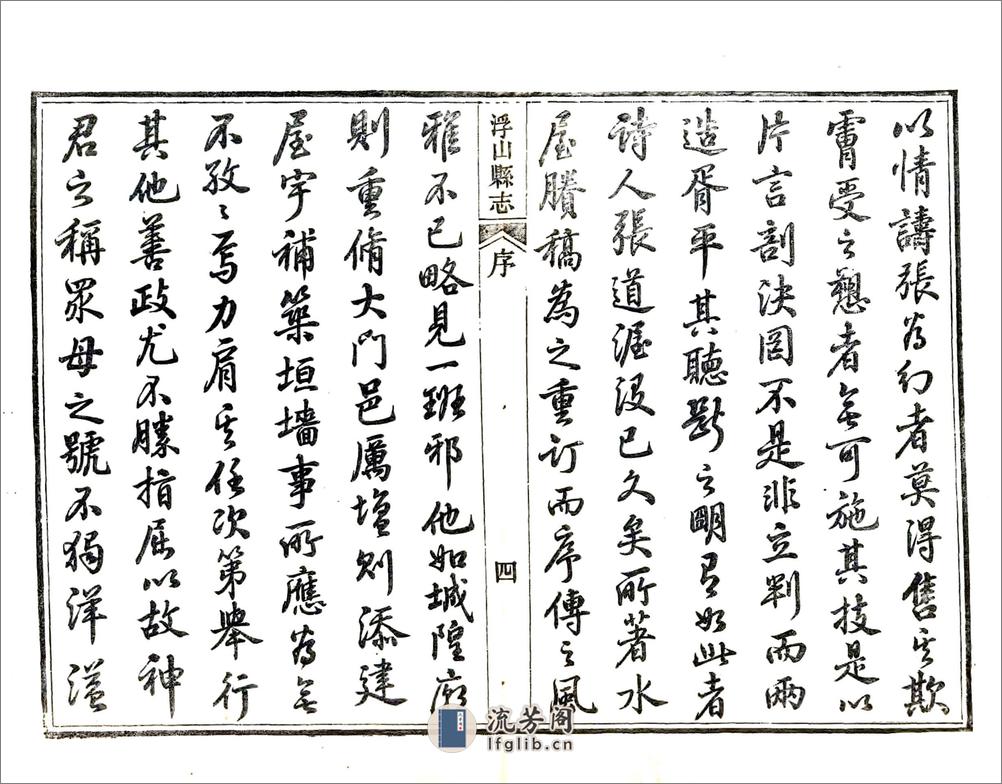 以情譸張為幻者莫得售其欺
膚受之愬者無可施其技是以
片言剖決罔不是非立判而兩
造胥平其聽斷之明有如此者
詩人張道渥沒已久矣所著水
屋賸稿為之重訂而序傳之風
浮山縣志
序
四
雅不已略見一班邪他如城隍廟
則重脩大門邑厲壇則添建
屋宇補築垣墻事所應為無
不孜〻焉力肩其任次第舉行
其他善政尤不勝指屈以故神
君之稱眾母之號不獨洋溢
流芳阁
lfglib.cn